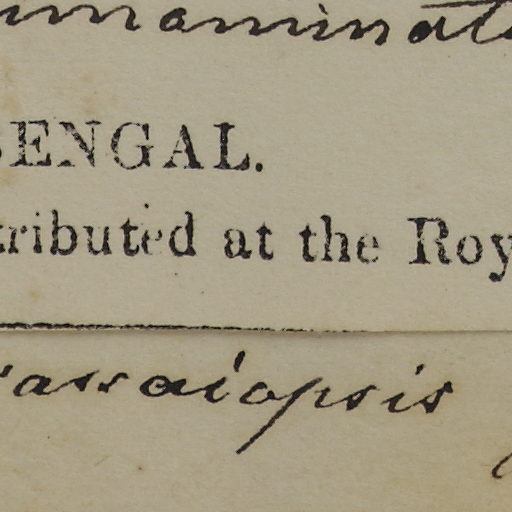 uminat
BENGAL.
tributed at the Roy
assaiopsis